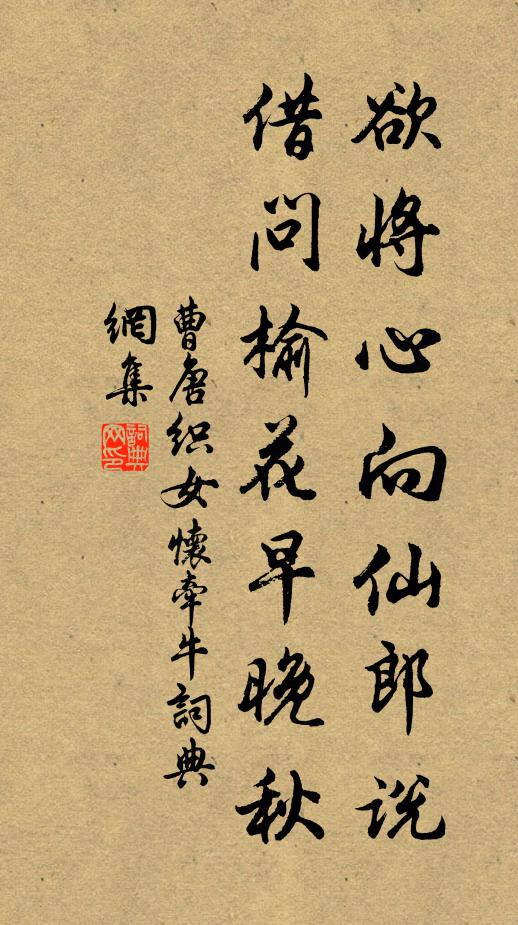 欲将心向仙郎说
借问榆花早晚秋
曹唐织女懷牽牛詞典
網集
詞典网印